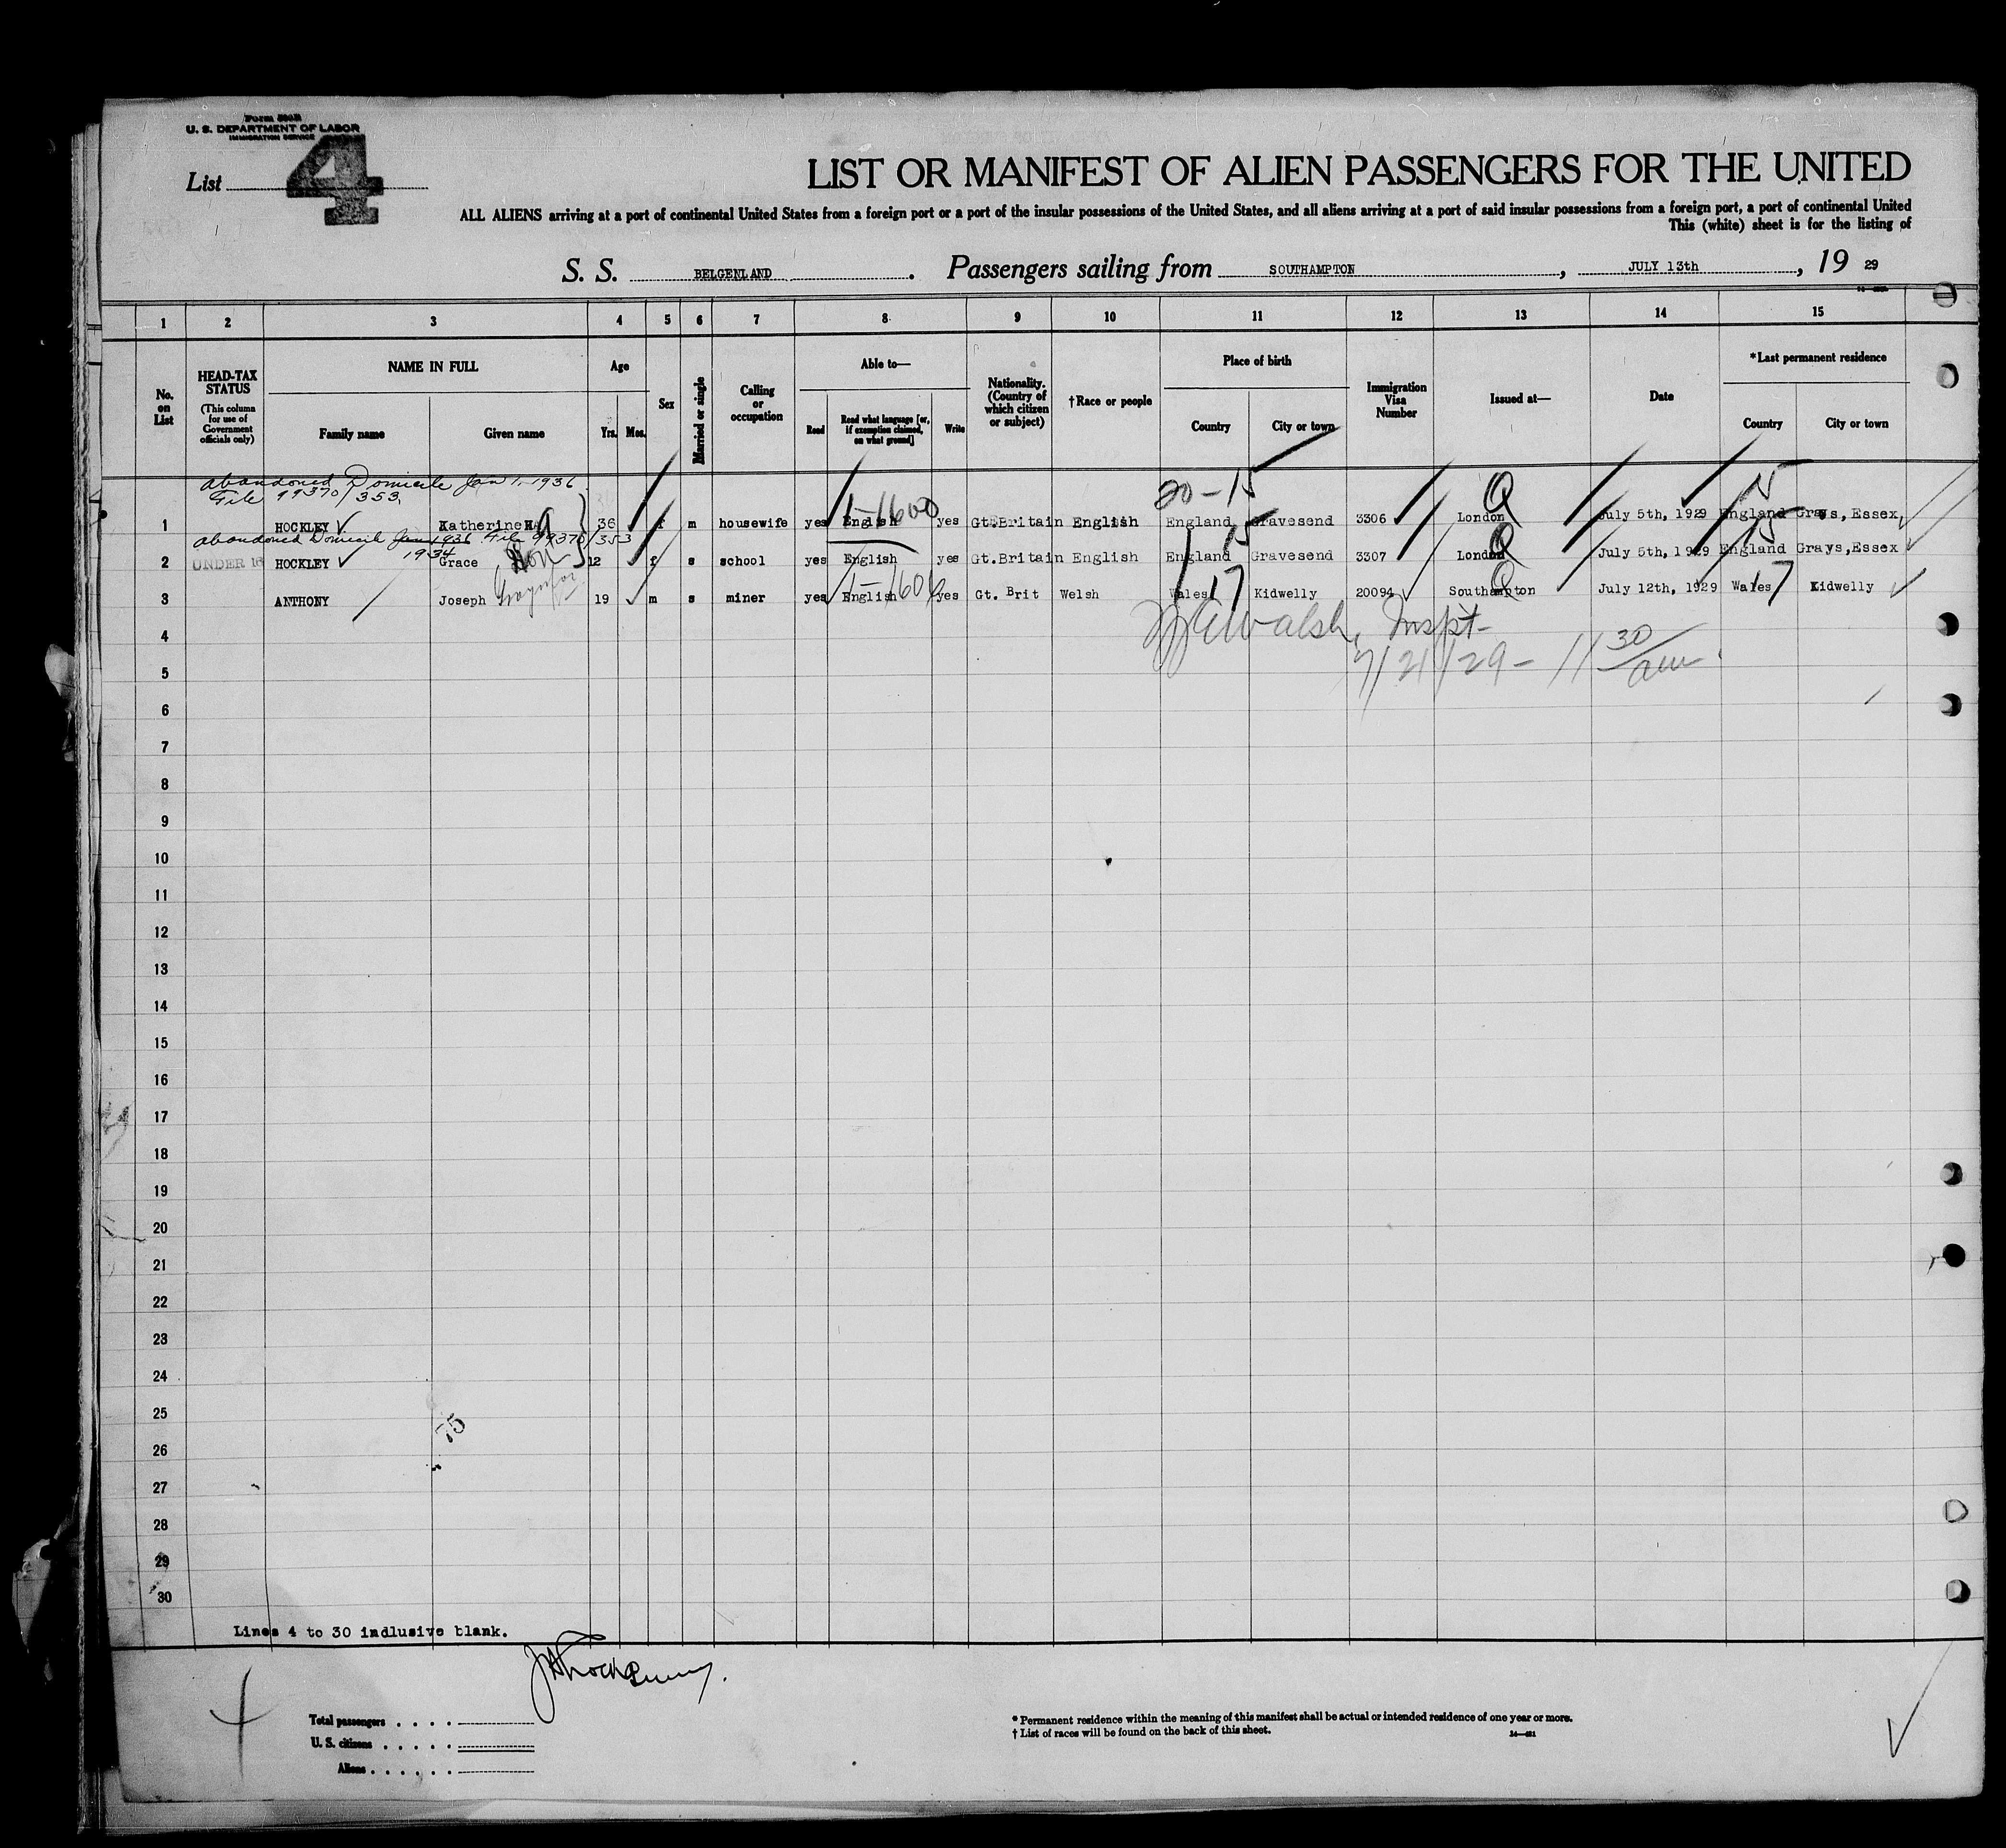 Form 500B
U. S. DEPARTMENT OF LABOR
IMMIGRATION SERVICE
List 4
LIST OR MANIFEST OF ALIEN PASSENGERS FOR THE UNITED
ALL ALIENS arriving at a port of continental United States from a foreign port or a port of the insular possessions of the United States, and all aliens arriving at a port of said insular possessions from a foreign port, a port of continental United
This (white) sheet is for the listing of
S. S. BELGENLAND. Passengers sailing from SOUTHAMPTON, JULY 13th, 19 29
1 2 3 4 5 6 7 8 9 10 11 12 13 14 15
No. on List
HEAD-TAX STATUS (This column for use of Government officials only)
NAME IN FULL
Family name Given name
Age
Yrs. Mos.
Sex
Married or single
Calling or occupation
Able to—
Read Read what language [or, if exemption claimed, on what ground] Write
Nationality. (Country of which citizen or subject)
†Race or people
Place of birth
Country City or town
Immigration Visa Number
Issued at—
Date
*Last permanent residence
Country City or town
abandoned Domicile Jan 1, 1936
File 99370/353
20-15 Q 15
1-1600
1 HOCKLEY Katherine 36 f m housewife yes English yes Gt.Britain English England Gravesend 3306 London July 5th, 1929 England Grays, Essex
abandoned Domicile Jan 1936 File 99370/353
1934
15 Q 15
2 UNDER 16 HOCKLEY Grace 12 f s school yes English yes Gt.Britain English England Gravesend 3307 London July 5th, 1929 England Grays,Essex
1-1606 17 Q 17
3 ANTHONY Joseph 19 m s miner yes English yes Gt. Brit Welsh Wales Kidwelly 20094 Southampton July 12th, 1929 Wales Kidwelly
Walsh, Inspt-
7/21/29 - 11 30 am
4
5
6
7
8
9
10
11
12
13
14
15
16
17
18
19
20
21
22
23
24
25
75
26
27
28
29
30
Lines 4 to 30 indlusive blank.
Total passengers . . . .
U. S. citizens . . . . .
Aliens . . . . . .
* Permanent residence within the meaning of this manifest shall be actual or intended residence of one year or more.
† List of races will be found on the back of this sheet.